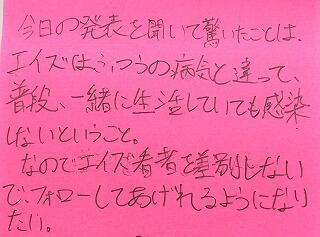 今日の発表を聞いて驚いたことは、
エイズは、ふつうの病気と違って、
普段、一緒に生活していても感染
しないということ。
なのでエイズ患者を差別しない
で、フォローしてあげれるようになり
たい。